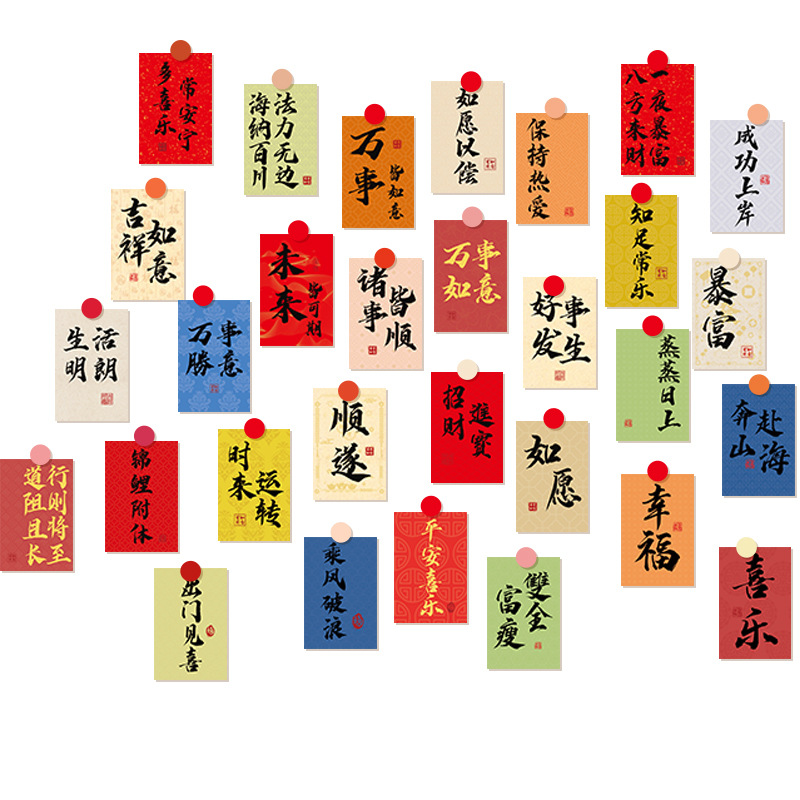 多喜乐
常安宁
法力无边
海纳百川
万事
皆如意
如愿以偿
保持热爱
一夜暴富
八方来财
成功上岸
吉祥
如意
未来
皆可期
诸事
皆順
万事
如意
知足常乐
暴富
生活
明朗
万事
勝意
好事
发生
蒸蒸日上
奔赴
山海
順遂
招财
進寶
如愿
道阻且长
行则将至
锦鲤附体
时来
运转
幸福
喜乐
出门见喜
乘风破浪
平安喜乐
富瘦
雙全